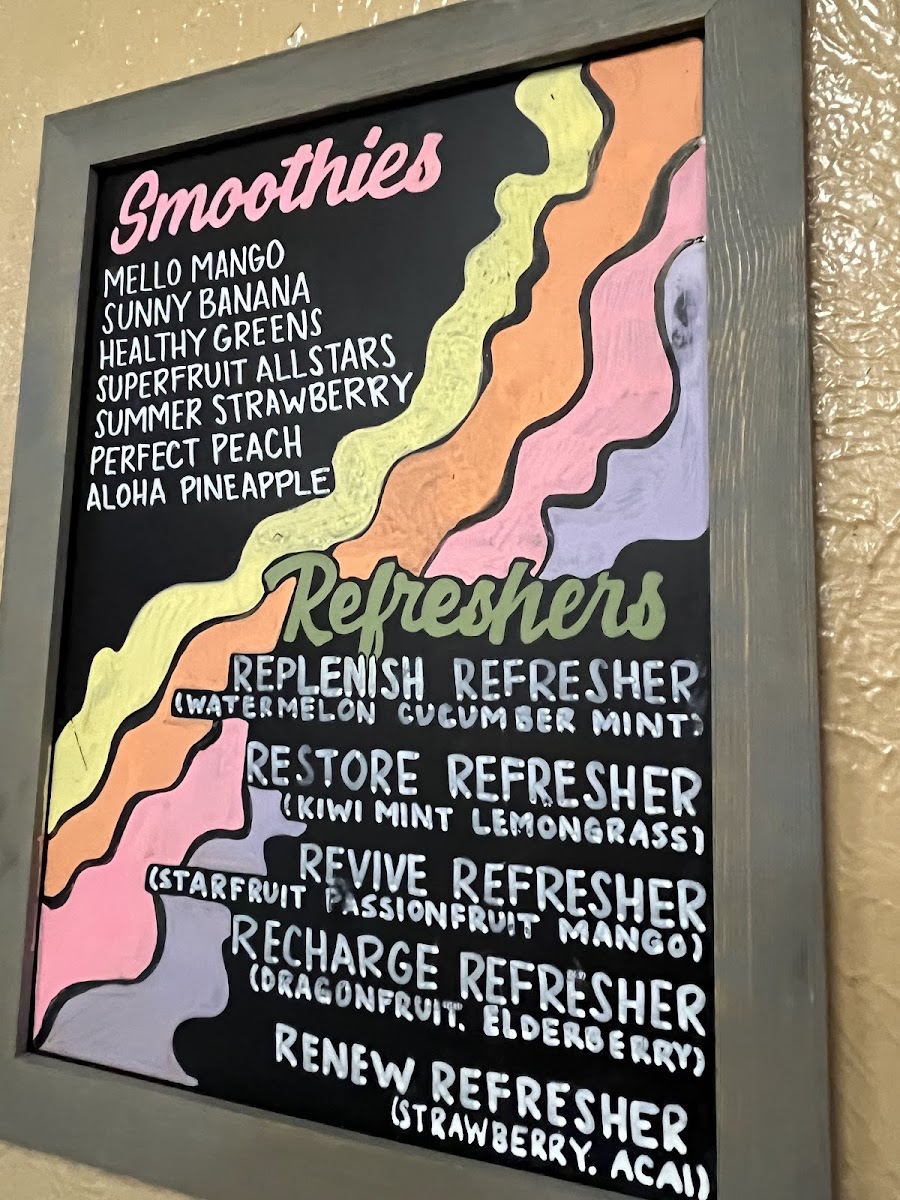 Smoothies
MELLO MANGO
SUNNY BANANA
HEALTHY GREENS
SUPERFRUIT ALLSTARS
SUMMER STRAWBERRY
PERFECT PEACH
ALOHA PINEAPPLE
Refreshers
REPLENISH REFRESHER
(WATERMELON CUCUMBER MINT)
RESTORE REFRESHER
(KIWI MINT LEMONGRASS)
REVIVE REFRESHER
(STARFRUIT PASSIONFRUIT MANGO)
RECHARGE REFRESHER
(DRAGONFRUIT. ELDERBERRY)
RENEW REFRESHER
(STRAWBERRY. ACAI)